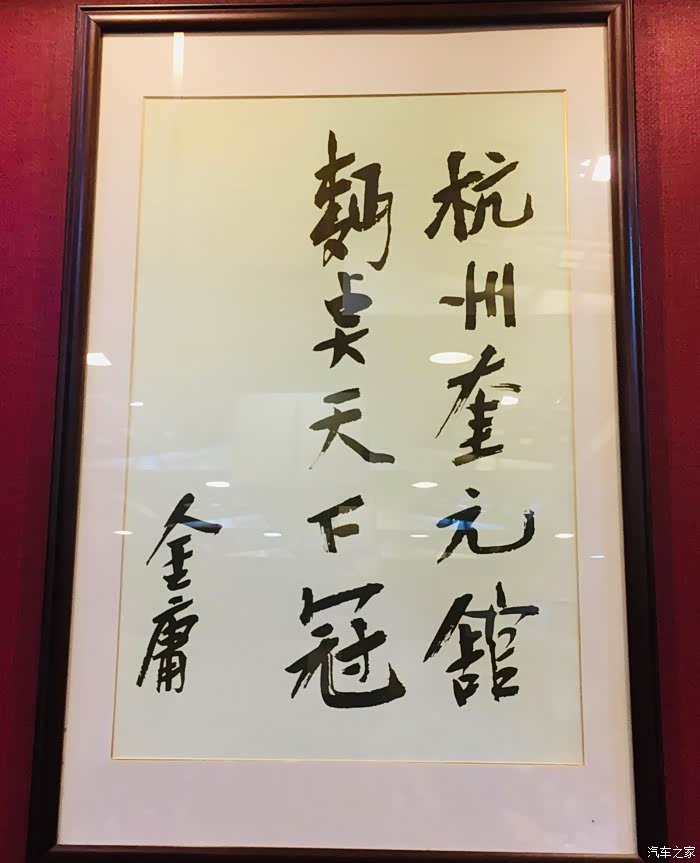 杭州奎元舘
麪奌天下冠
金庸
汽车之家